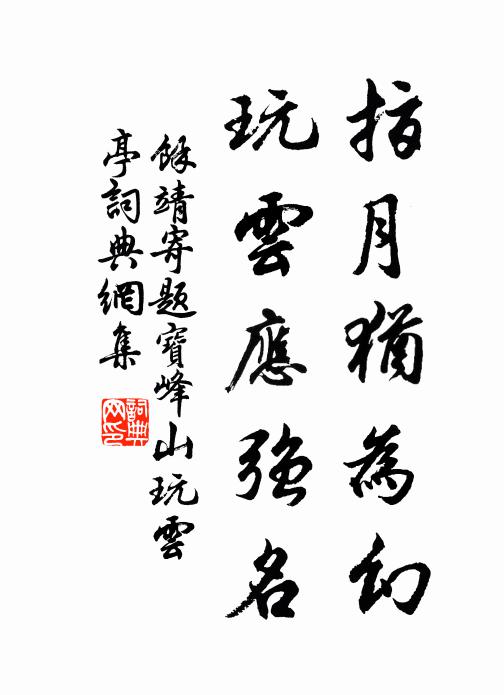 指月猶為幻
玩雲應強名
餘靖寄題寶峰山玩雲
亭詞典網集
詞典
网印